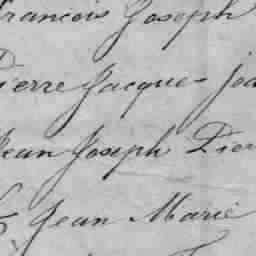 francois Joseph
Pierre Jacques
Jean Joseph
& Jean Marie